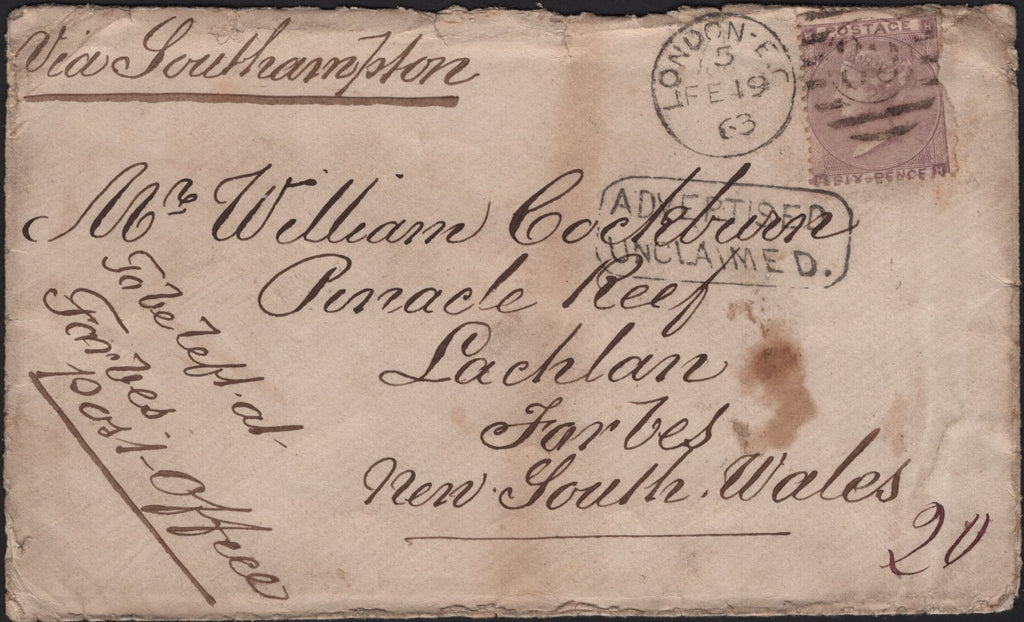 Via Southampton
LONDON-EC
5
FE 19
63
POSTAGE
SIX-PENCE
ADVERTISED
UNCLAIMED.
Mr William Cockburn
Pinacle Reef
Lachlan
Forbes
New South Wales
To be left at
Forbes
post-Office
20